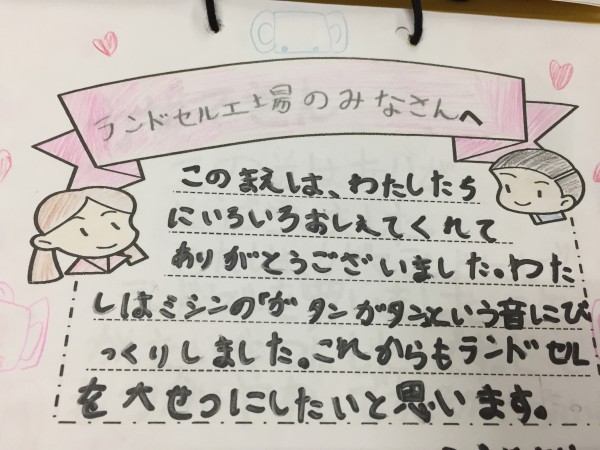 ランドセル工場のみなさんへ
このまえは、わたしたち
にいろいろおしえてくれて
ありがとうございました。わた
しはミシンの「ガタンガタン」という音にび
っくりしました。これからもランドセル
を大せつにしたいと思います。